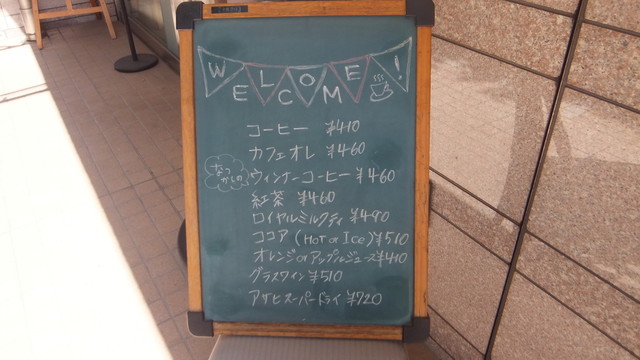 WELCOME!
コーヒー ¥410
カフェオレ ¥460
なつかしの
ウィンナーコーヒー ¥460
紅茶 ¥460
ロイヤルミルクティ ¥490
ココア (HOT or ICE) ¥510
オレンジorアップルジュース ¥410
グラスワイン ¥510
アサヒスーパードライ ¥720